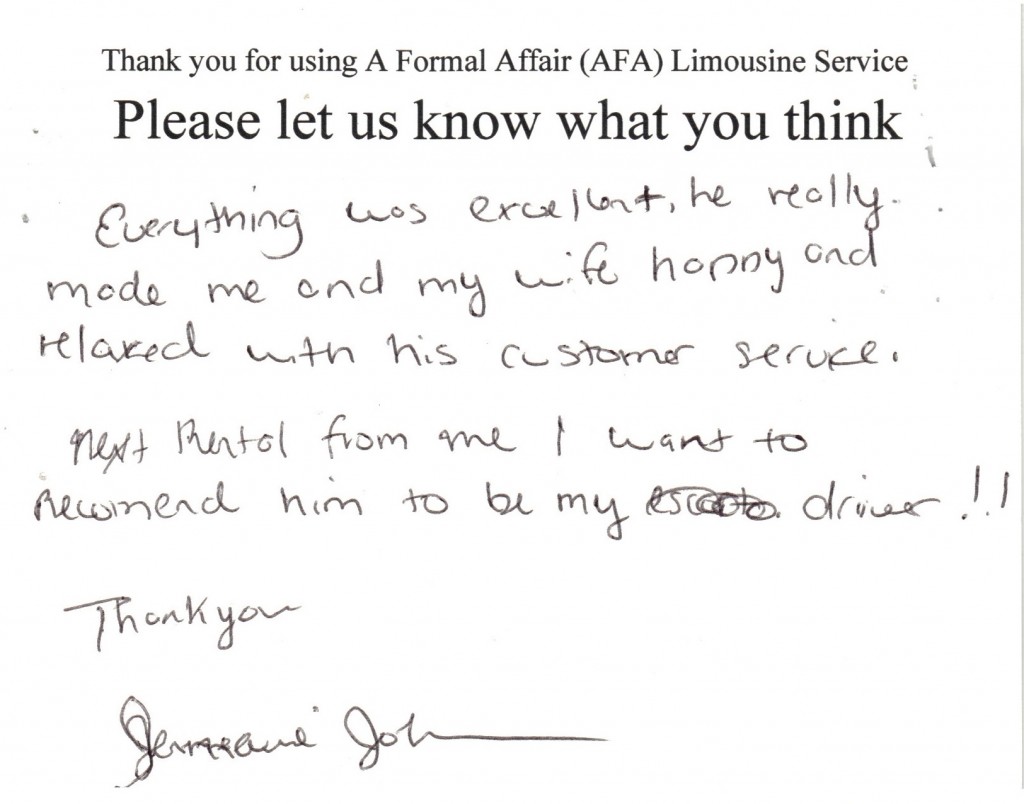 Thank you for using A Formal Affair (AFA) Limousine Service
Please let us know what you think
Everything was excellent, he really
made me and my wife happy and
relaxed with his customer service.
Next Rental from me I want to
recomend him to be my driver!!
Thank you
Jermaine Joh